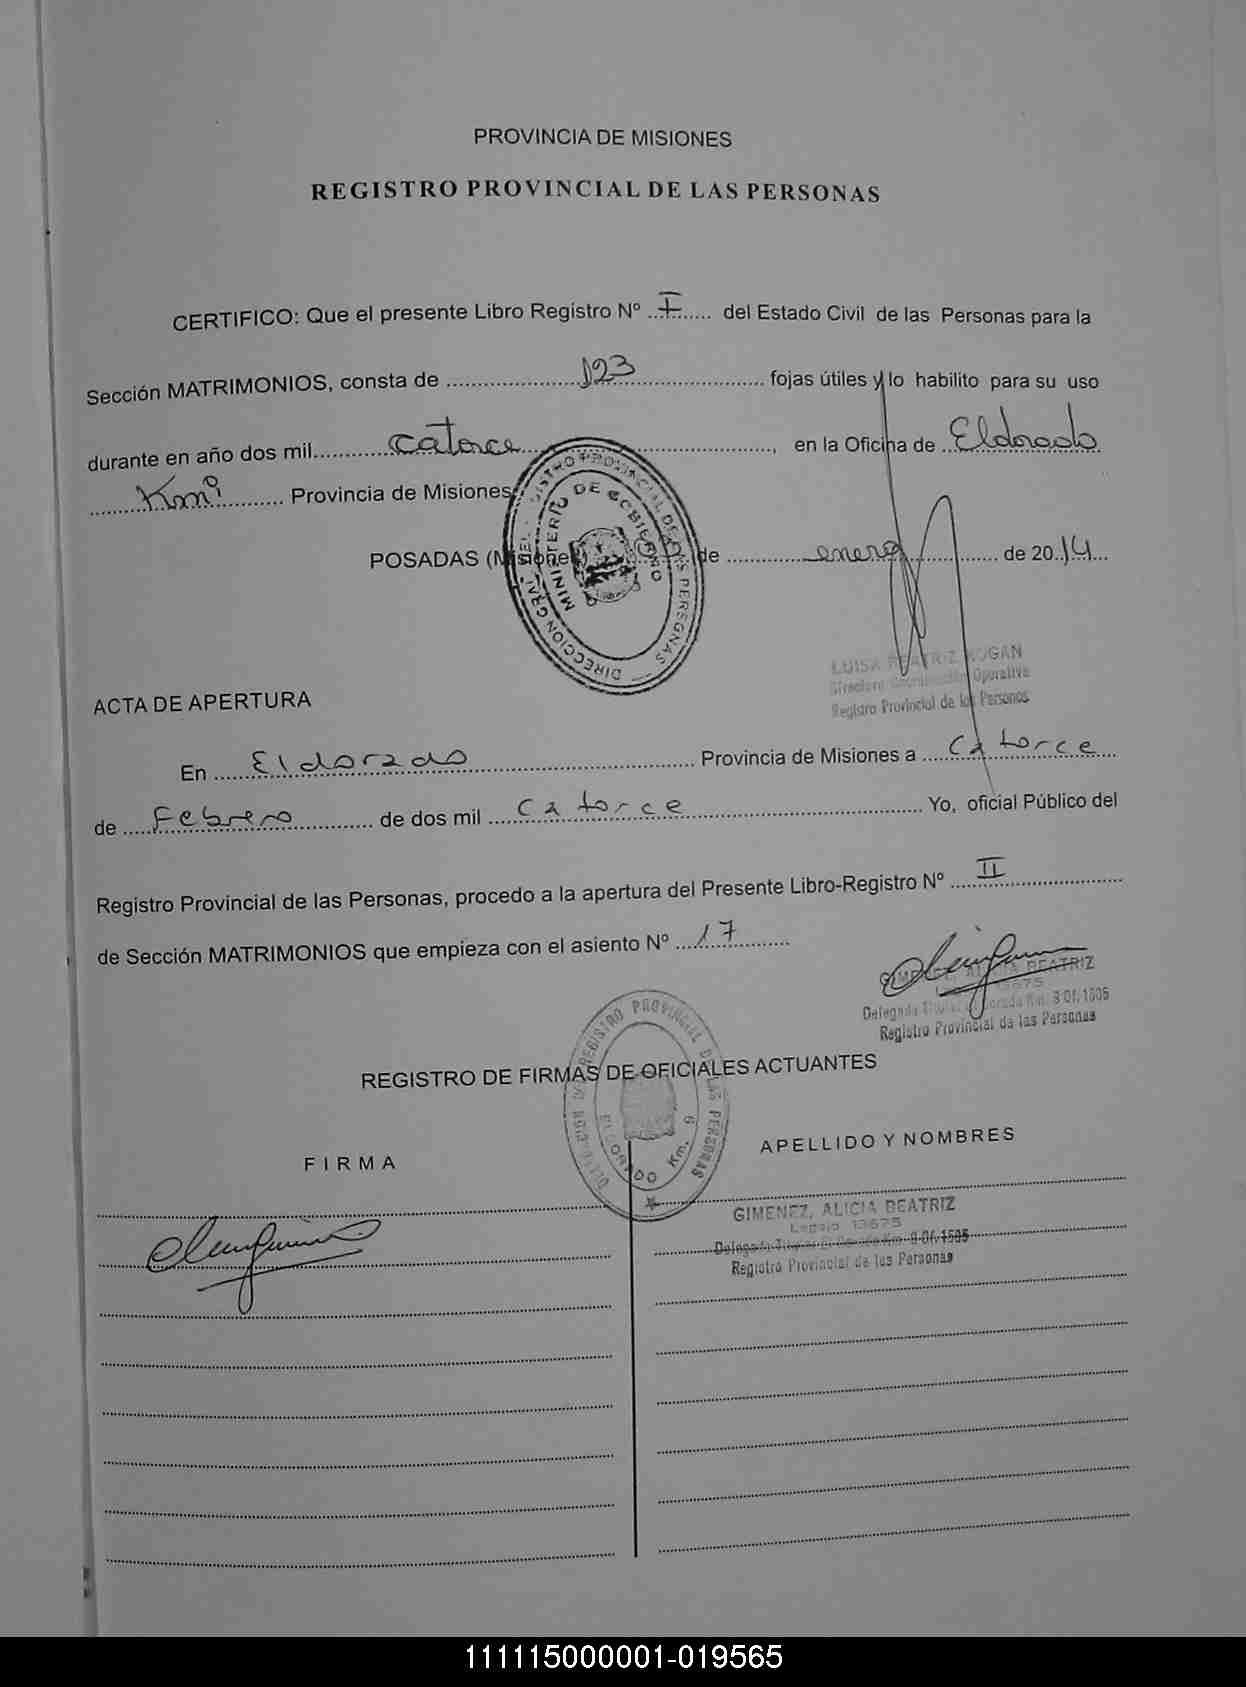 PROVINCIA DE MISIONES
REGISTRO PROVINCIAL DE LAS PERSONAS
CERTIFICO: Que el presente Libro Registro Nº ..I...... del Estado Civil de las Personas para la
Sección MATRIMONIOS, consta de ........123........ fojas útiles y lo habilito para su uso
durante en año dos mil........catorce........, en la Oficina de ..Eldorado..
........ Provincia de Misiones
POSADAS (Misiones) de ........enero........ de 20.14...
DIRECCION GRAL. DEL REGISTRO PROVINCIAL DE LAS PERSONAS
MINISTERIO DE GOBIERNO
LUISA BEATRIZ KOGAN
Directora Coordinación Operativa
Registro Provincial de las Personas
ACTA DE APERTURA
En ......Eldorado...... Provincia de Misiones a ...Catorce...
de ...Febrero...... de dos mil ...Catorce...... Yo, oficial Público del
Registro Provincial de las Personas, procedo a la apertura del Presente Libro-Registro Nº ...II......
de Sección MATRIMONIOS que empieza con el asiento Nº ...17......
GIMENEZ, ALICIA BEATRIZ
13675
Delegada Titular Eldorado Km. 8 Of. 1505
Registro Provincial de las Personas
REGISTRO PROVINCIAL DE LAS PERSONAS
ELDORADO Km.
REGISTRO DE FIRMAS DE OFICIALES ACTUANTES
FIRMA
APELLIDO Y NOMBRES
GIMENEZ, ALICIA BEATRIZ
Legajo 13675
Delegada Titular Eldorado Km. 8 Of. 1505
Registro Provincial de las Personas
111115000001-019565